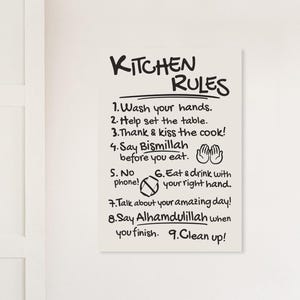 KITCHEN
RULES
1. Wash your hands.
2. Help set the table.
3. Thank & kiss the cook!
4. Say Bismillah
before you eat.
5. No
phone!
6. Eat & drink with
your right hand.
7. Talk about your amazing day!
8. Say Alhamdulillah when
you finish.
9. Clean up!